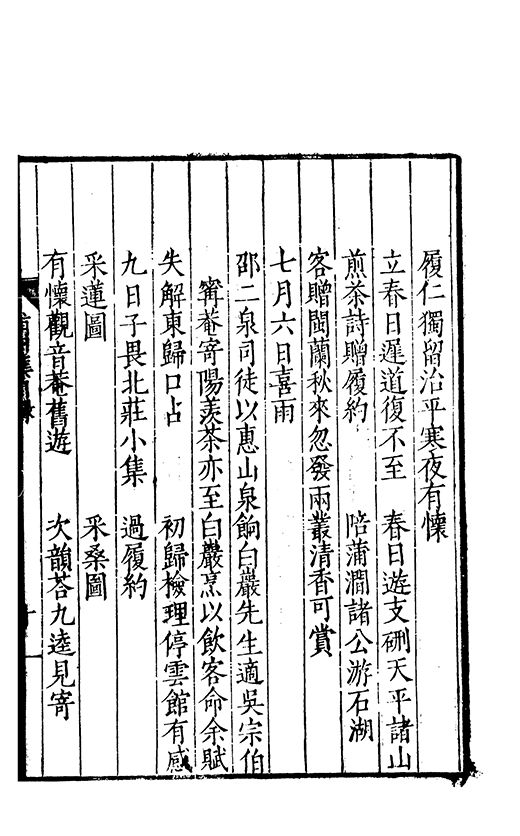 履仁獨留治平寒夜有懷
立春日遲道復不至　春日遊支硎天平諸山
煎茶詩贈履約　陪蒲澗諸公游石湖
客贈閩蘭秋來忽發兩叢清香可賞
七月六日喜雨
邵二泉司徒以惠山泉餉白巖先生適吳宗伯
寗菴寄陽羨茶亦至白巖烹以飲客命余賦
失解東歸口占　初歸檢理停雲館有感
九日子畏北莊小集　過履約
采蓮圖　采桑圖
有懷觀音菴舊遊　次韻荅九逵見寄